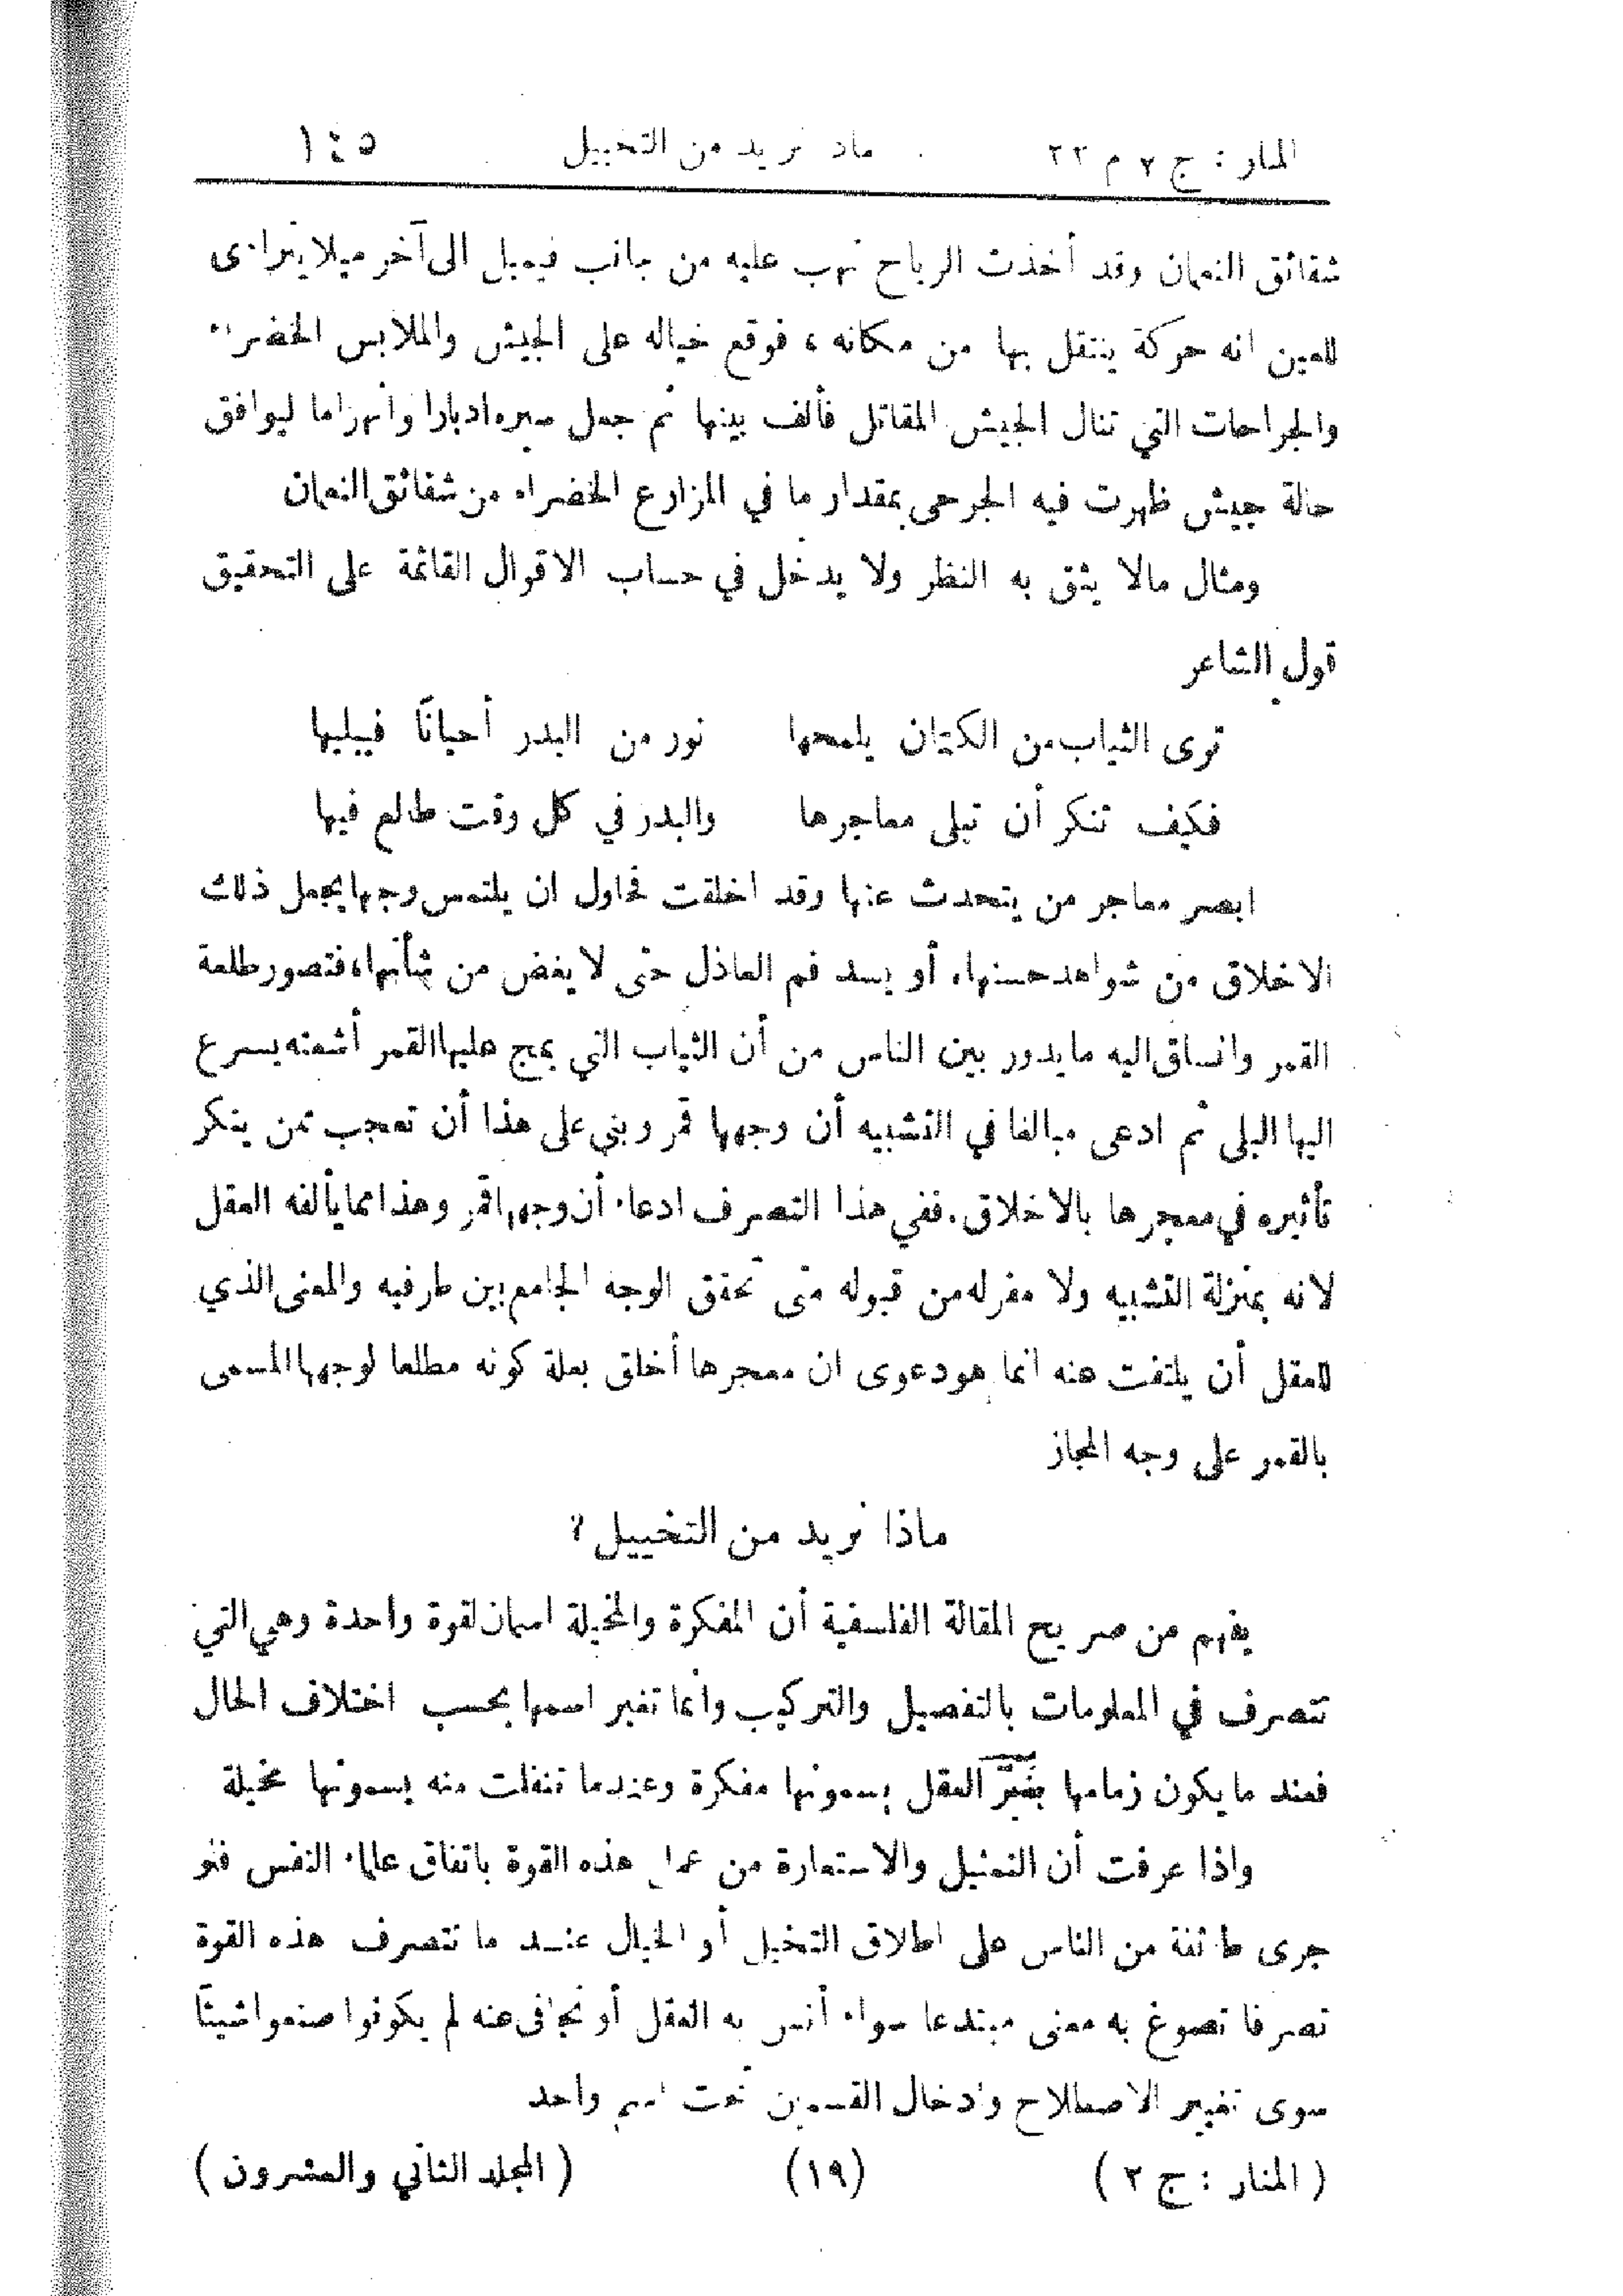 المنار : ج ٢ م ٢٢ ماذا نريد من التخييل ١٤٥
شقائق النعمان وقد أخذت الرياح تهب عليه من جانب فيميل الى آخر ميلا يتراءى
للعين انه حركة ينتقل بها من مكانه ، فوقع خياله على الجيش والملابس الخضراء
والجراحات التي تنال الجيش المقاتل فألف بينها ثم جعل سيره ادبارا وانهزاما ليوافق
حالة جيش ظهرت فيه الجرحى بمقدار ما في المزارع الخضراء من شقائق النعمان
ومثال مالا يثق به النظر ولا يدخل في حساب الاقوال القائمة على التحقيق
قول الشاعر
ترى الثياب من الكتان يلمحها نور من البدر أحيانًا فيبليها
فكيف تنكر أن تبلى معاجرها والبدر في كل وقت طالع فيها
ابصر معاجر من يتحدث عنها وقد اخلقت فحاول ان يلتمس وجها يجعل ذلك
الاخلاق من شواهد حسنها، أو يسد فم العاذل حتى لا يغض من شأنها، فتصور طلعة
القمر وانساق اليه ما يدور بين الناس من أن الثياب التي يمج عليها القمر أشعته يسرع
اليها البلى ثم ادعى مبالغا في التشبيه أن وجهها قمر وبنى على هذا أن تعجب ممن ينكر
تأثيره في معجرها بالاخلاق. ففي هذا التصرف ادعاء أن وجهها قمر وهذا مما يألفه العقل
لانه بمنزلة التشبيه ولا مفر له من قبوله متى تحقق الوجه الجامع بين طرفيه والمعنى الذي
للعقل أن يلتفت عنه انما هو دعوى ان معجرها أخلق بعلة كونه مطلعا لوجهها المسمى
بالقمر على وجه المجاز
ماذا نريد من التخييل ؟
يفهم من صريح المقالة الفلسفية أن المفكرة والمخيلة اسمان لقوة واحدة وهي التي
تتصرف في المعلومات بالتفصيل والتركيب وانما تغير اسمها بحسب اختلاف الحال
فعند ما يكون زمامها العقل يسمونها مفكرة وعندما تنفلت منه يسمونها مخيلة
واذا عرفت أن التمثيل والاستعارة من عمل هذه القوة باتفاق علماء النفس فلو
جرى طائفة من الناس على اطلاق التخيل أو الخيال عند ما تتصرف هذه القوة
تصرفا تصوغ به معنى مبتدعا سواء أنس به العقل أو تجافى عنه لم يكونوا صنعوا شيئًا
سوى تغيير الاصطلاح وادخال القسمين تحت اسم واحد
( المنار : ج ٢ ) (١٩) ( المجلد الثاني والعشرون )